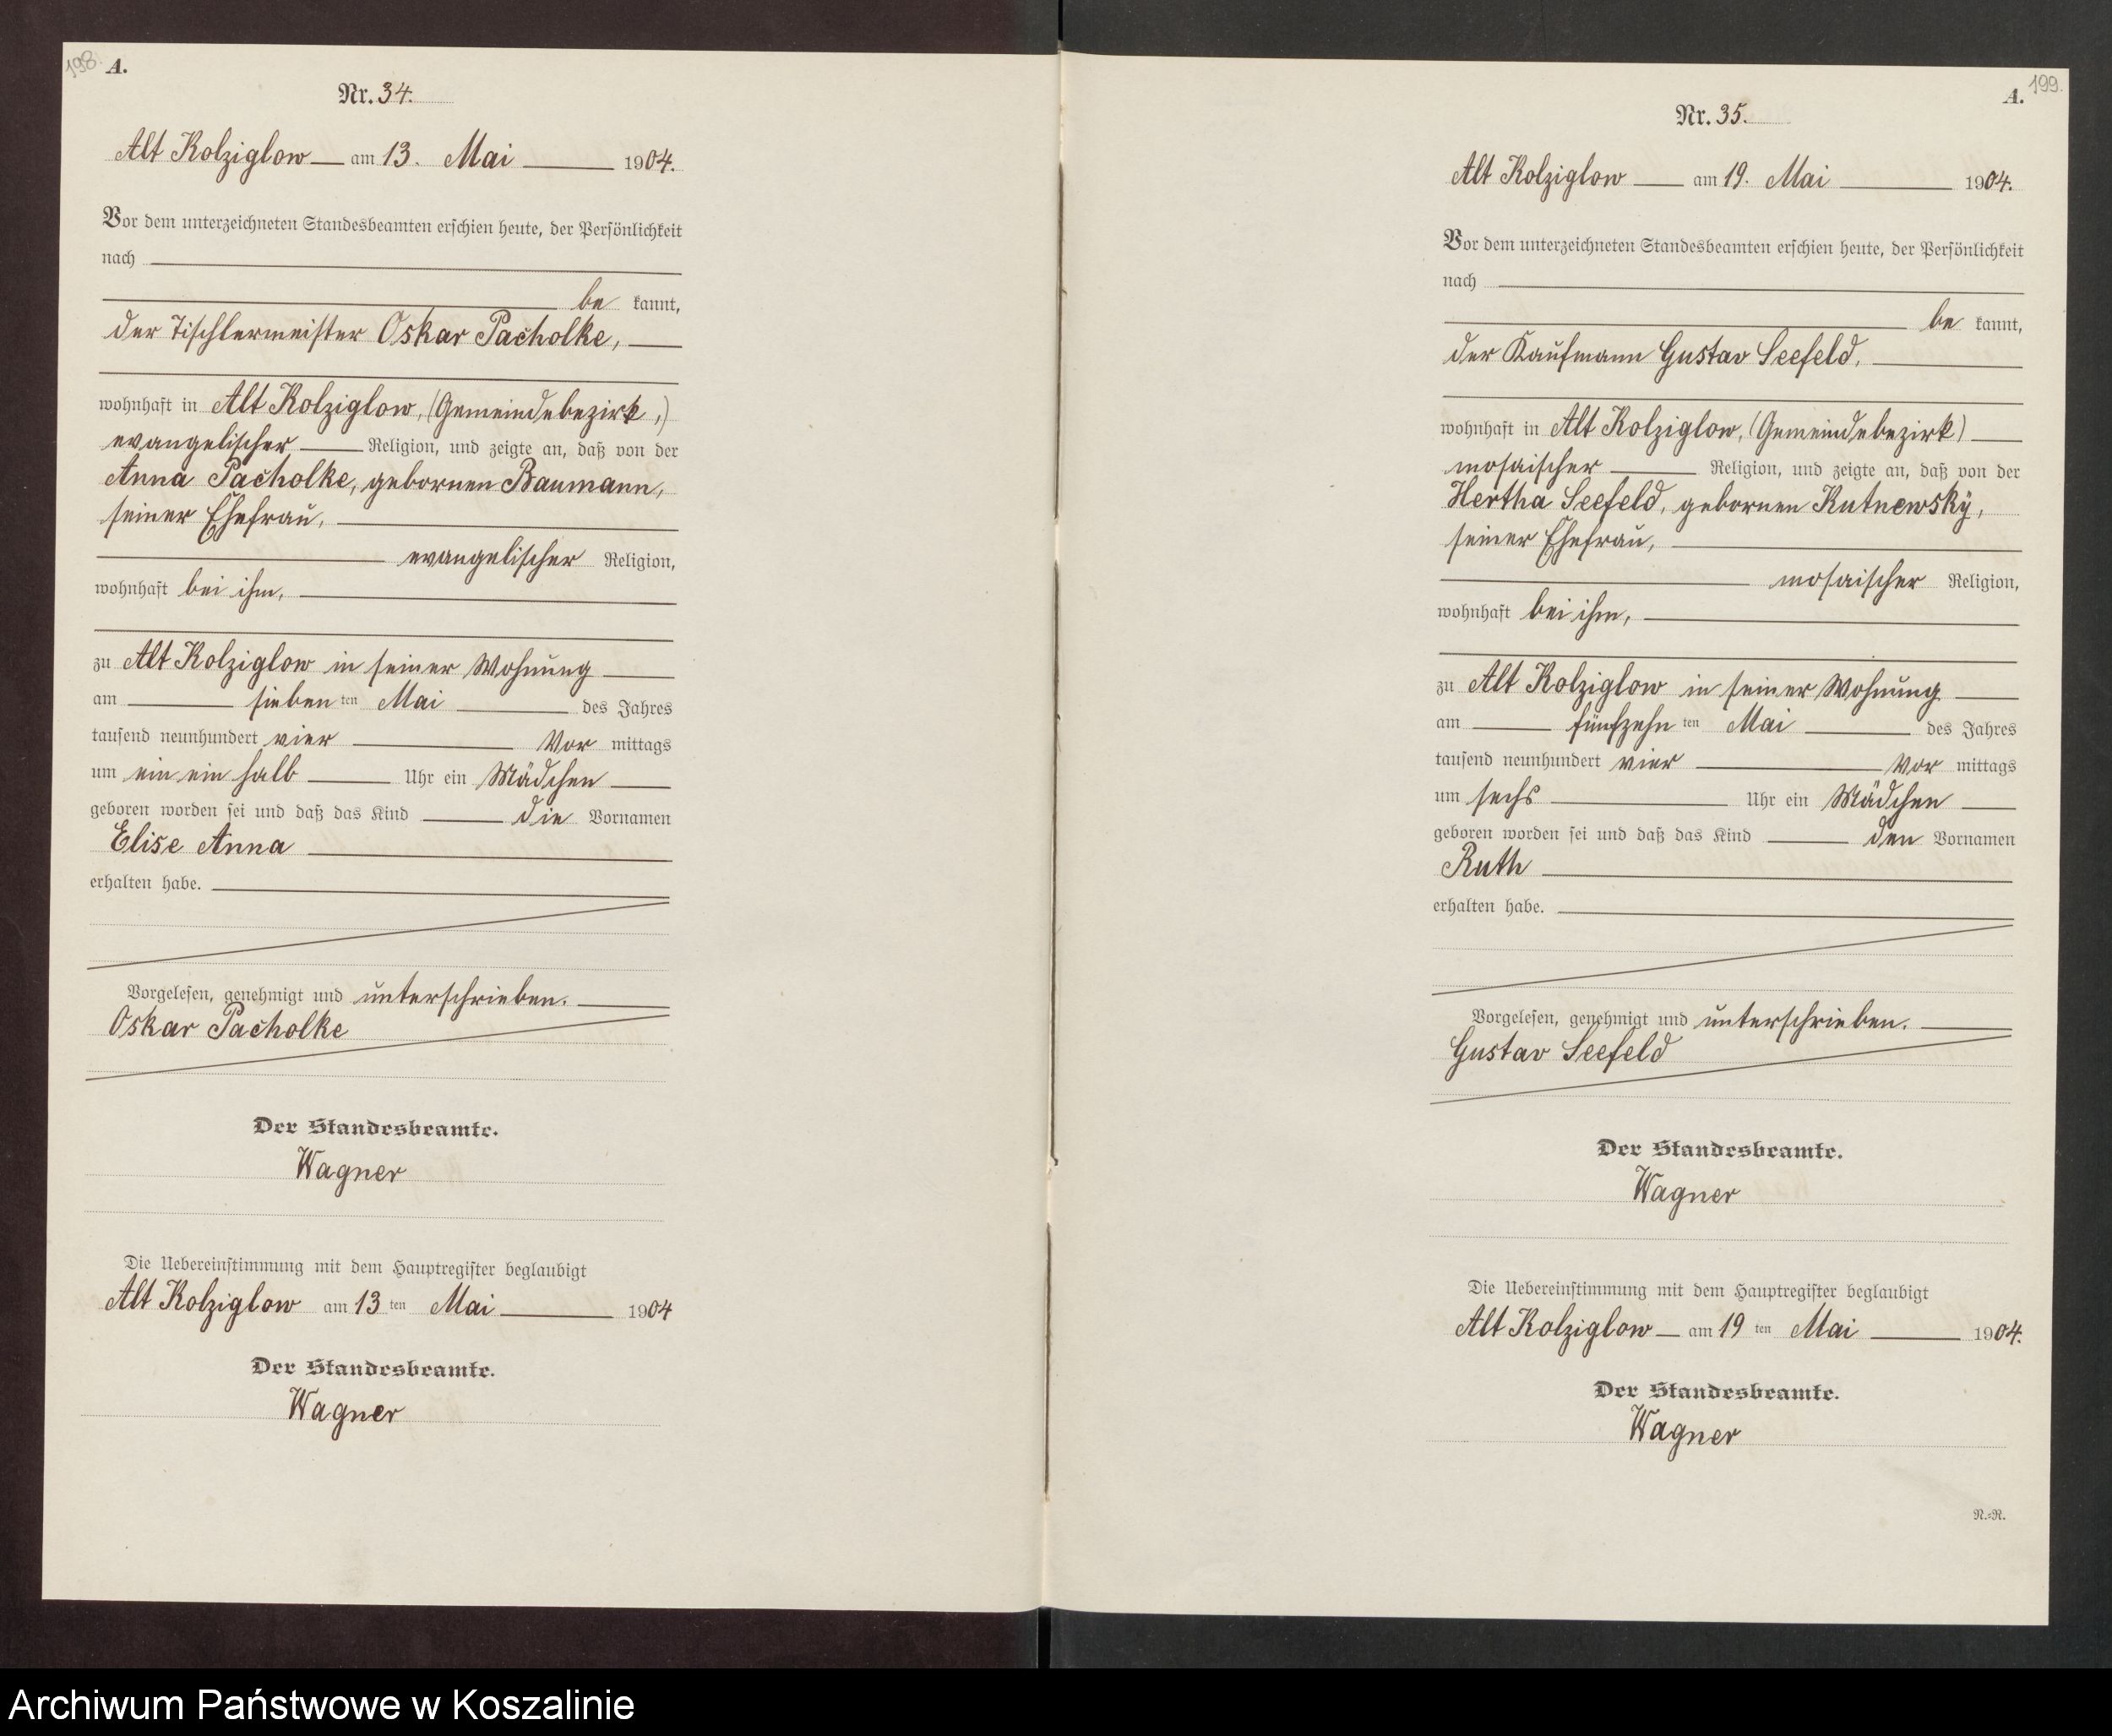 198.
A.
Nr. 34.
Alt Kolziglow am 13. Mai 1904.
Vor dem unterzeichneten Standesbeamten erschien heute, der Persönlichkeit
nach
be kannt,
der Tischlermeister Oskar Pacholke,
wohnhaft in Alt Kolziglow, (Gemeindebezirk,)
evangelischer Religion, und zeigte an, daß von der
Anna Pacholke, gebornen Baumann,
seiner Ehefrau,
evangelischer Religion,
wohnhaft bei ihm,
zu Alt Kolziglow in seiner Wohnung
am sieben ten Mai des Jahres
tausend neunhundert vier Vor mittags
um ein ein halb Uhr ein Mädchen
geboren worden sei und daß das Kind die Vornamen
Elise Anna
erhalten habe.
Vorgelesen, genehmigt und unterschrieben.
Oskar Pacholke
Der Standesbeamte.
Wagner
Die Uebereinstimmung mit dem Hauptregister beglaubigt
Alt Kolziglow am 13 ten Mai 1904
Der Standesbeamte.
Wagner
199.
A.
Nr. 35.
Alt Kolziglow am 19. Mai 1904.
Vor dem unterzeichneten Standesbeamten erschien heute, der Persönlichkeit
nach
be kannt,
der Kaufmann Gustav Seefeld,
wohnhaft in Alt Kolziglow, (Gemeindebezirk)
mosaischer Religion, und zeigte an, daß von der
Hertha Seefeld, gebornen Kutnewsky,
seiner Ehefrau,
mosaischer Religion,
wohnhaft bei ihm,
zu Alt Kolziglow in seiner Wohnung
am fünfzehn ten Mai des Jahres
tausend neunhundert vier Vor mittags
um sechs Uhr ein Mädchen
geboren worden sei und daß das Kind den Vornamen
Ruth
erhalten habe.
Vorgelesen, genehmigt und unterschrieben.
Gustav Seefeld
Der Standesbeamte.
Wagner
Die Uebereinstimmung mit dem Hauptregister beglaubigt
Alt Kolziglow am 19 ten Mai 1904.
Der Standesbeamte.
Wagner
N.=R.
Archiwum Państwowe w Koszalinie